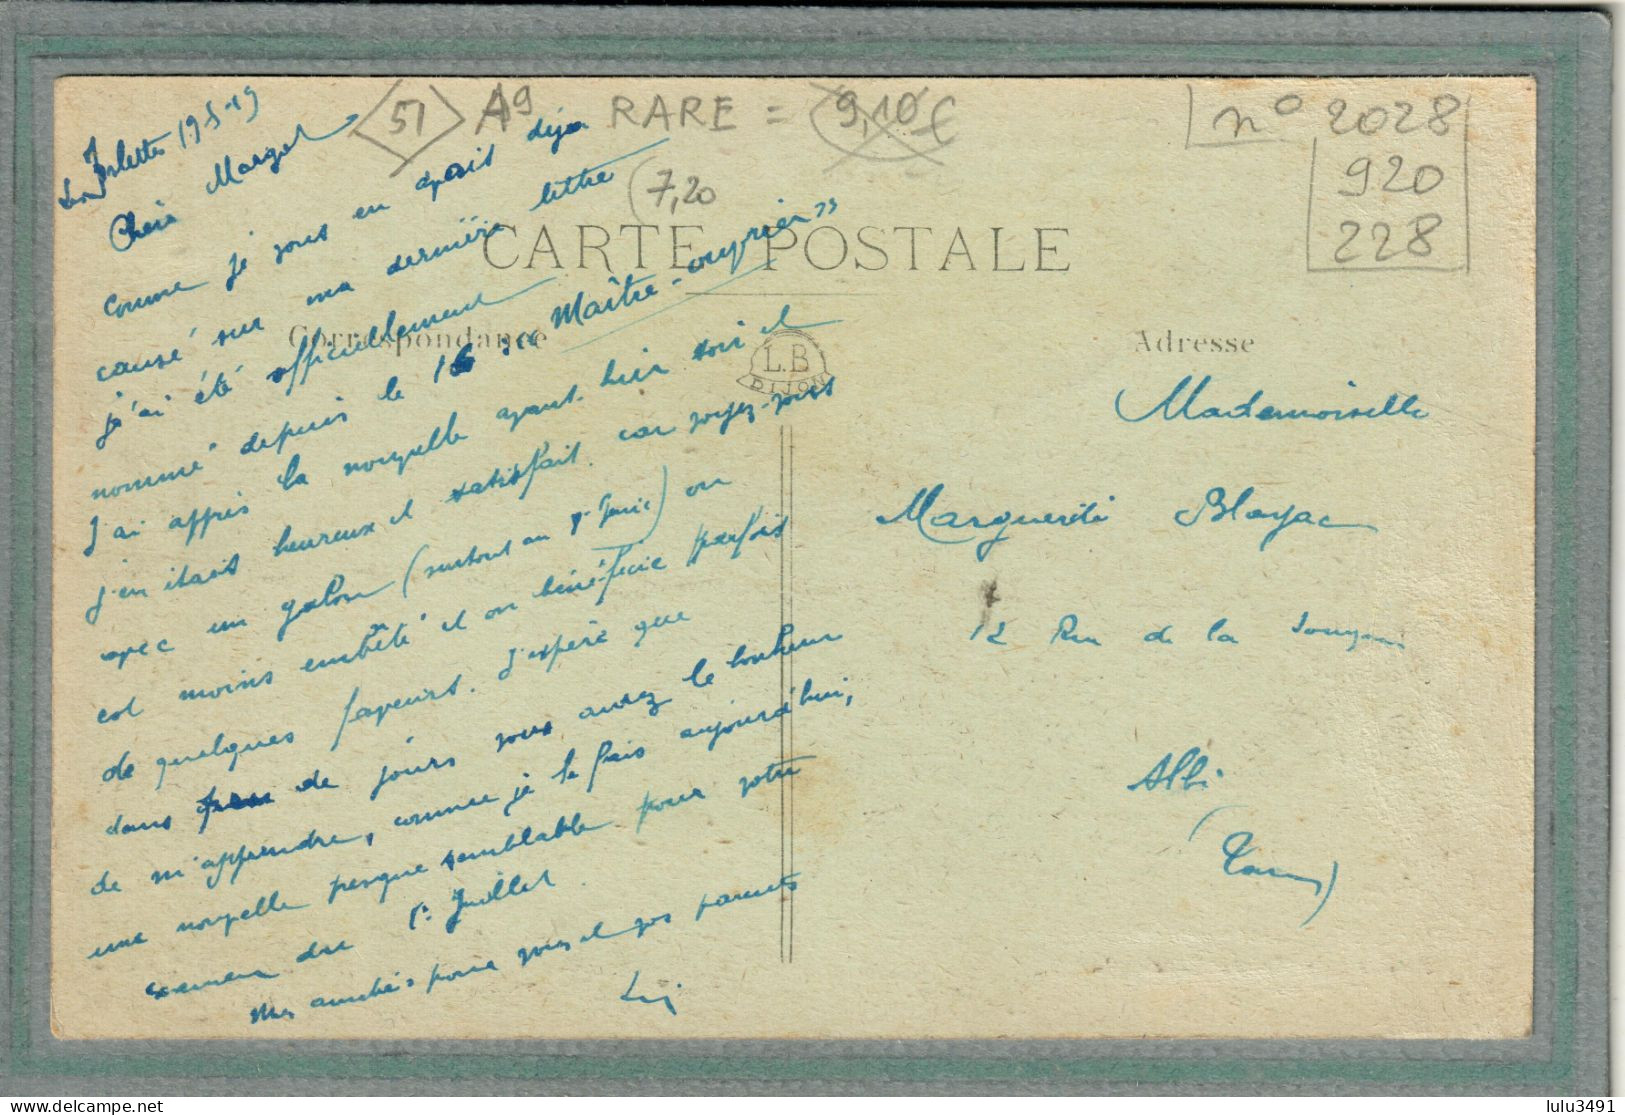 51 A9 RARE = 9,10€
n° 2028
920
228
7,20
CARTE POSTALE
Correspondance
Adresse
L.B
DIJON
Les Islettes 19-5-19
Chère Margot
comme je vous en avais déjà
causé sur ma dernière lettre
j'ai été officiellement
nommé depuis le 16 "Maître-ouvrier"
J'ai appris la nouvelle avant hier soir et
j'en étais heureux et satisfait. car voyez-vous
avec un galon (surtout au Génie) on
est moins embêté et on bénéficie parfois
de quelques faveurs. J'espère que
dans peu de jours vous aurez le bonheur
de m'apprendre, comme je le fais aujourd'hui,
une nouvelle presque semblable pour votre
examen du 1er Juillet.
Mes amitiés pour vous et vos parents
Mademoiselle
Marguerite Blayac
12 Rue de la
Albi
(Tarn)
lulu3491
www.delcampe.net